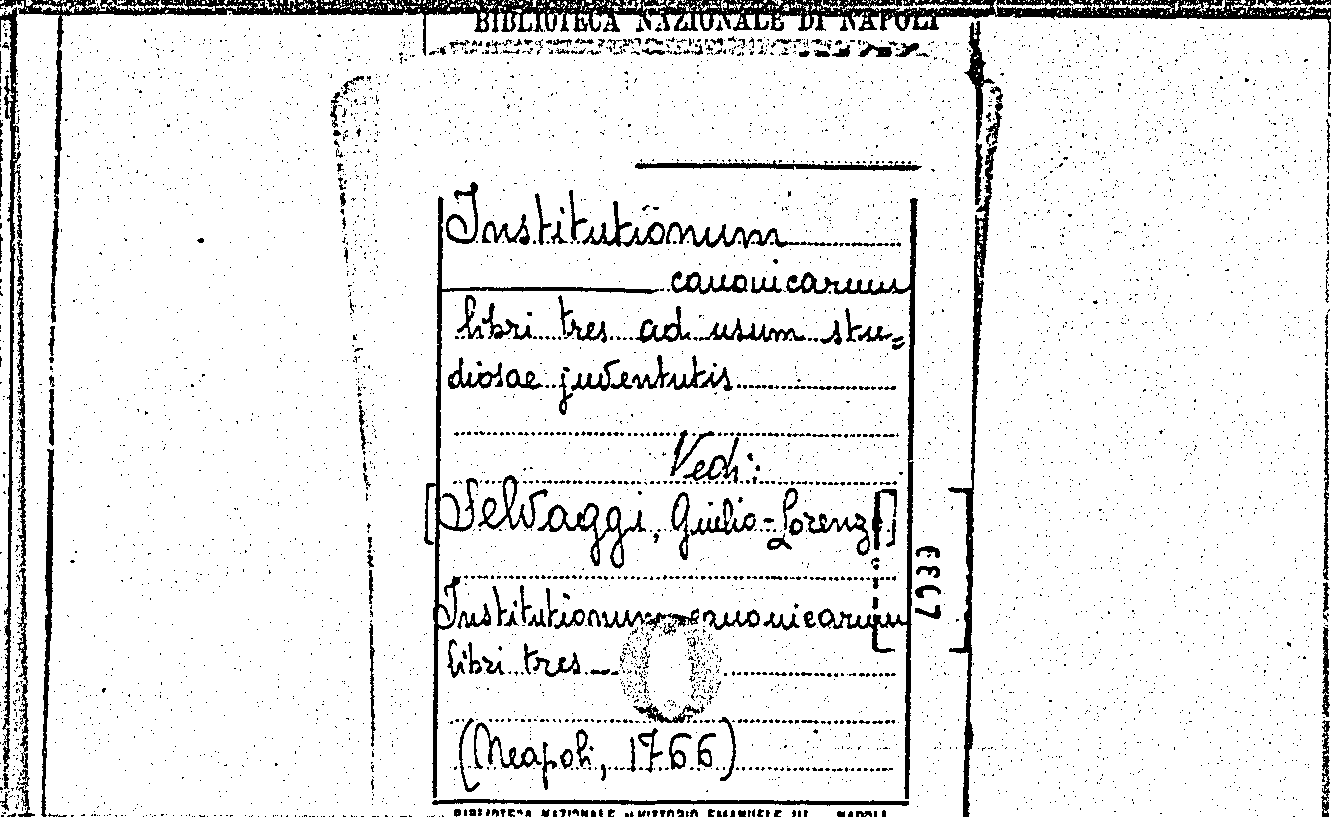 BIBLIOTECA NAZIONALE DI NAPOLI
Institutionum
canonicarum
libri tres ad usum stu=
diosae juventutis
Vedi:
[Selvaggi, Giulio-Lorenzo]
Institutionum canonicarum
libri tres
(Neapoli, 1766)
BIBLIOTECA NAZIONALE "VITTORIO EMANUELE III" - NAPOLI